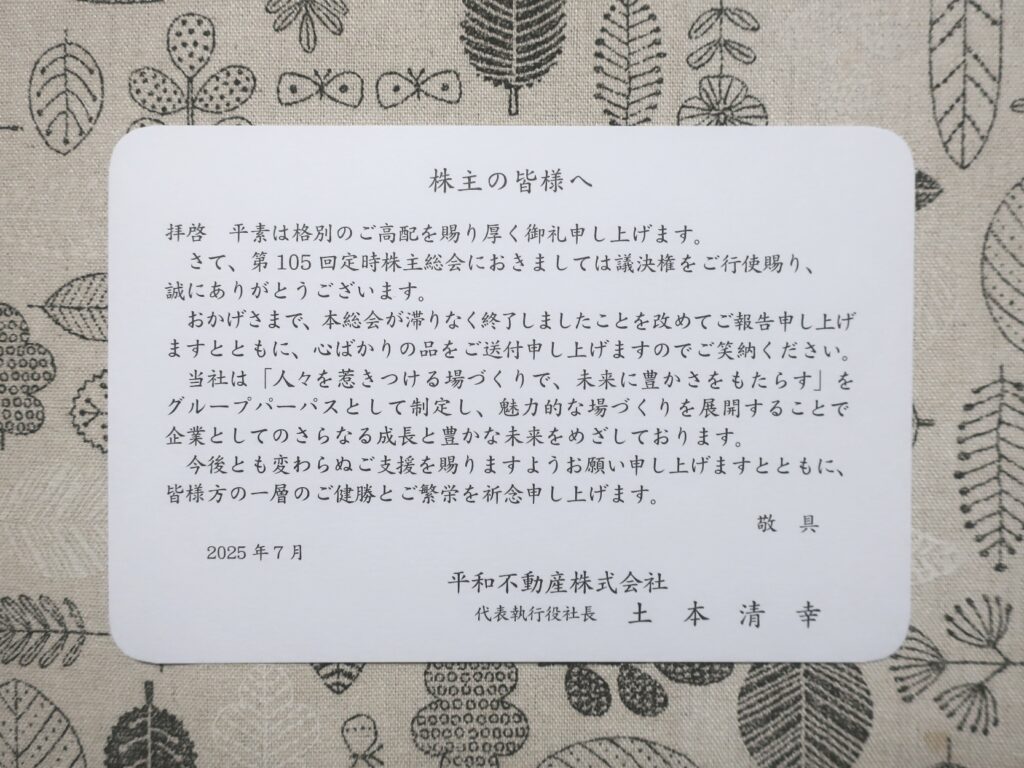 株主の皆様へ
拝啓　平素は格別のご高配を賜り厚く御礼申し上げます。
さて、第105回定時株主総会におきましては議決権をご行使賜り、
誠にありがとうございます。
おかげさまで、本総会が滞りなく終了しましたことを改めてご報告申し上げ
ますとともに、心ばかりの品をご送付申し上げますのでご笑納ください。
当社は「人々を惹きつける場づくりで、未来に豊かさをもたらす」を
グループパーパスとして制定し、魅力的な場づくりを展開することで
企業としてのさらなる成長と豊かな未来をめざしております。
今後とも変わらぬご支援を賜りますようお願い申し上げますとともに、
皆様方の一層のご健勝とご繁栄を祈念申し上げます。
敬　具
2025年7月
平和不動産株式会社
代表執行役社長　土　本　清　幸